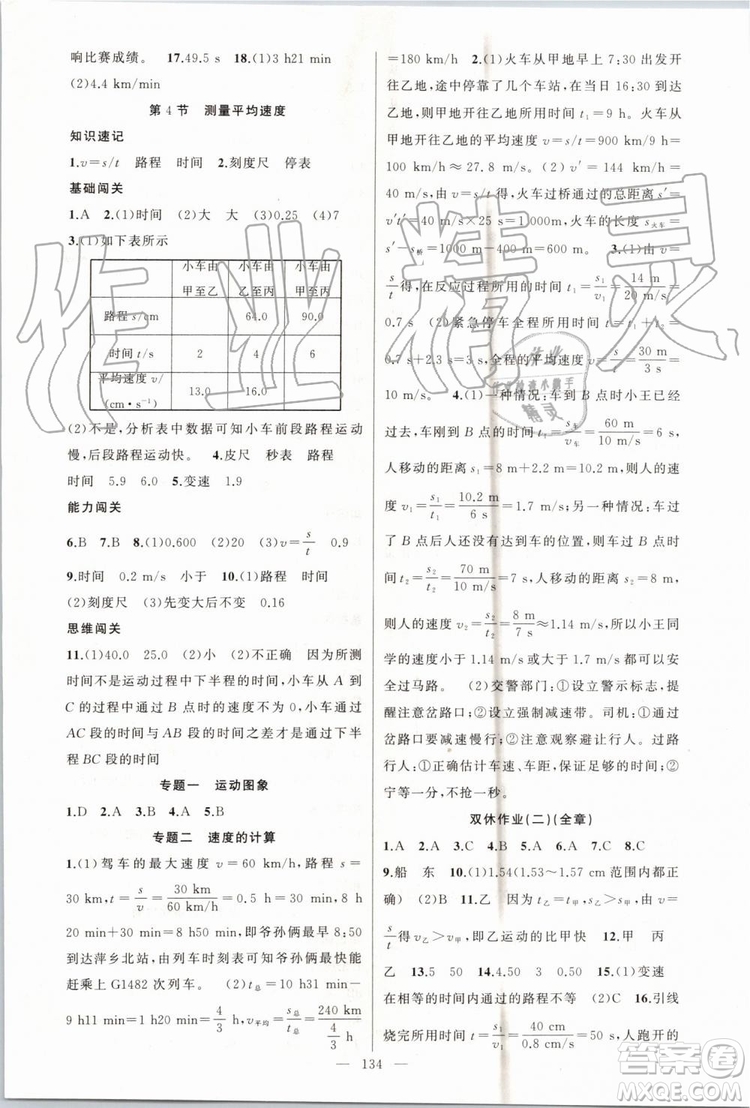 响比赛成绩。 17.49.5 s 18.(1)3 h21 min
(2)4.4 km/min
第4节 测量平均速度
知识速记
1.v=s/t 路程 时间 2.刻度尺 停表
基础闯关
1.A 2.(1)时间 (2)大 大 (3)0.25 (4)7
3.(1)如下表所示
小车由甲至乙 小车由乙至丙 小车由甲至丙
路程 s/cm 64.0 90.0
时间 t/s 2 4 6
平均速度 v/(cm·s⁻¹) 13.0 16.0
(2)不是,分析表中数据可知小车前段路程运动
慢,后段路程运动快。 4.皮尺 秒表 路程
时间 5.9 6.0 5.变速 1.9
能力闯关
6.B 7.B 8.(1)0.600 (2)20 (3)v=s/t 0.9
9.时间 0.2 m/s 小于 10.(1)路程 时间
(2)刻度尺 (3)先变大后不变 0.16
思维闯关
11.(1)40.0 25.0 (2)小 (2)不正确 因为所测
时间不是运动过程中下半程的时间,小车从 A 到
C 的过程中通过 B 点时的速度不为0,小车通过
AC 段的时间与 AB 段的时间之差才是小车下半
程 BC 段的时间
专题一 运动图象
1.D 2.A 3.A 4.A 5.B
专题二 速度的计算
1.(1)驾车的最大速度 v=60 km/h,路程 s=
30 km,t=s/v=30 km/60 km/h=0.5 h=30 min,8 h
20 min+30 min=8 h50 min,即爷孙俩最早8:50
到达萍乡北站,由列车时刻表可知爷孙俩最快能
赶乘上 G1482 次列车。 (2)t总=10 h31 min-
9 h11 min=1 h20 min=4/3 h,v平均=s总/t总=240 km/4/3 h
=180 km/h 2.(1)火车从甲地早上7:30出发
开往乙地,途中停了几个车站,在当日16:30到达
乙地,火车行驶所用时间 t₁=9 h。火车从
甲地开往乙地的平均速度 v=s/t₁=900 km/9 h=
100 km/h≈27.8 m/s。(2)v′=144 km/h=
40 m/s,由速度公式v=s/t得,火车过桥的总距离 s′=
v′t′=40 m/s×25 s=1000 m,火车的长度 s火车=
s′-s桥=1000 m-400 m=600 m。 3.(1)由v=
s/t得,在反应过程所用的时间 t₁=s₁/v₁=14 m/20 m/s=
0.7 s (2)紧急停车全程所用时间 t=t₁+t₂=
0.7 s+2.3 s=3 s,全程的平均速度 v=s/t=30 m/3 s=
10 m/s。 4.(1)一种情况:车到 B 点时小王已经
过去,车刚到 B 点的时间 t₁=s车/v车=60 m/10 m/s=6 s,
人移动的距离 s₁=8 m+2.2 m=10.2 m,人的速
度 v₁=s₁/t₁=10.2 m/6 s=1.7 m/s;另一种情况:车过
了 B 点人还没有达到车的位置,则车到 B 点的时
间 t₂=s₂/v₂=70 m/10 m/s=7 s,人移动的距离 s=8 m,
则人的速度 v₂=s₂/t₂=8 m/7 s≈1.14 m/s,所以小王同
学的速度小于1.14 m/s或大于1.7 m/s时,能安
全过马路。 (2)交警部门:①设立警示标志,提
醒注意岔路口;②设立强制减速带。司机:①通过
岔路口时减速慢行;②注意观察避让行人。过路
行人:①正确估计车速、车距,不盲目抢行;②
宁等一列,不抢一秒。
双休作业(二)(全章)
1.A 2.C 3.C 4.A 5.B 6.C 7.C 8.C
9.船 东 10.(1)1.54(1.53~1.57 cm 范围内均正
确) (2)B 11.乙 因为t乙=t甲,s乙>s甲,由v=
s/t得v乙>v甲,即乙运动的比甲快 12.甲 丙
乙 13.5 50 14.4.50 9 0.005 15.(1)变速
在相等的时间内通过的路程不等 (2)C 16.引线
烧完所用时间 t=s₁/v₁=40 cm/0.8 cm/s=50 s,人跑开的
— 134 —
作业精灵
答案卷